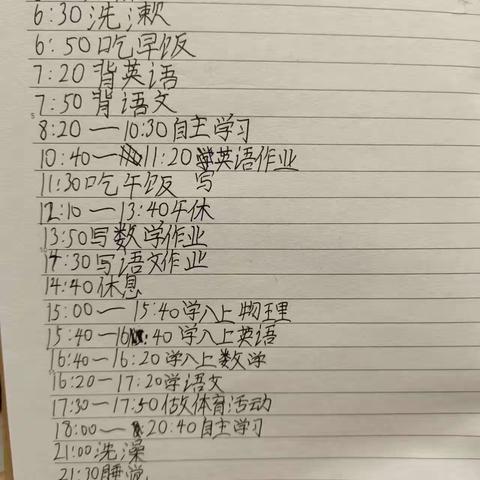 6:30洗漱
6:50吃早饭
7:20背英语
7:50背语文
8:20—10:30自主学习
10:40—11:20写英语作业
11:30吃午饭
12:10—13:40午休
13:50写数学作业
14:30写语文作业
14:40休息
15:00—15:40学八上物理
15:40—16:40学八上英语
16:40—16:20学八上数学
16:20—17:20学语文
17:30—17:50做体育活动
18:00—20:40自主学习
21:00洗澡
21:30睡觉